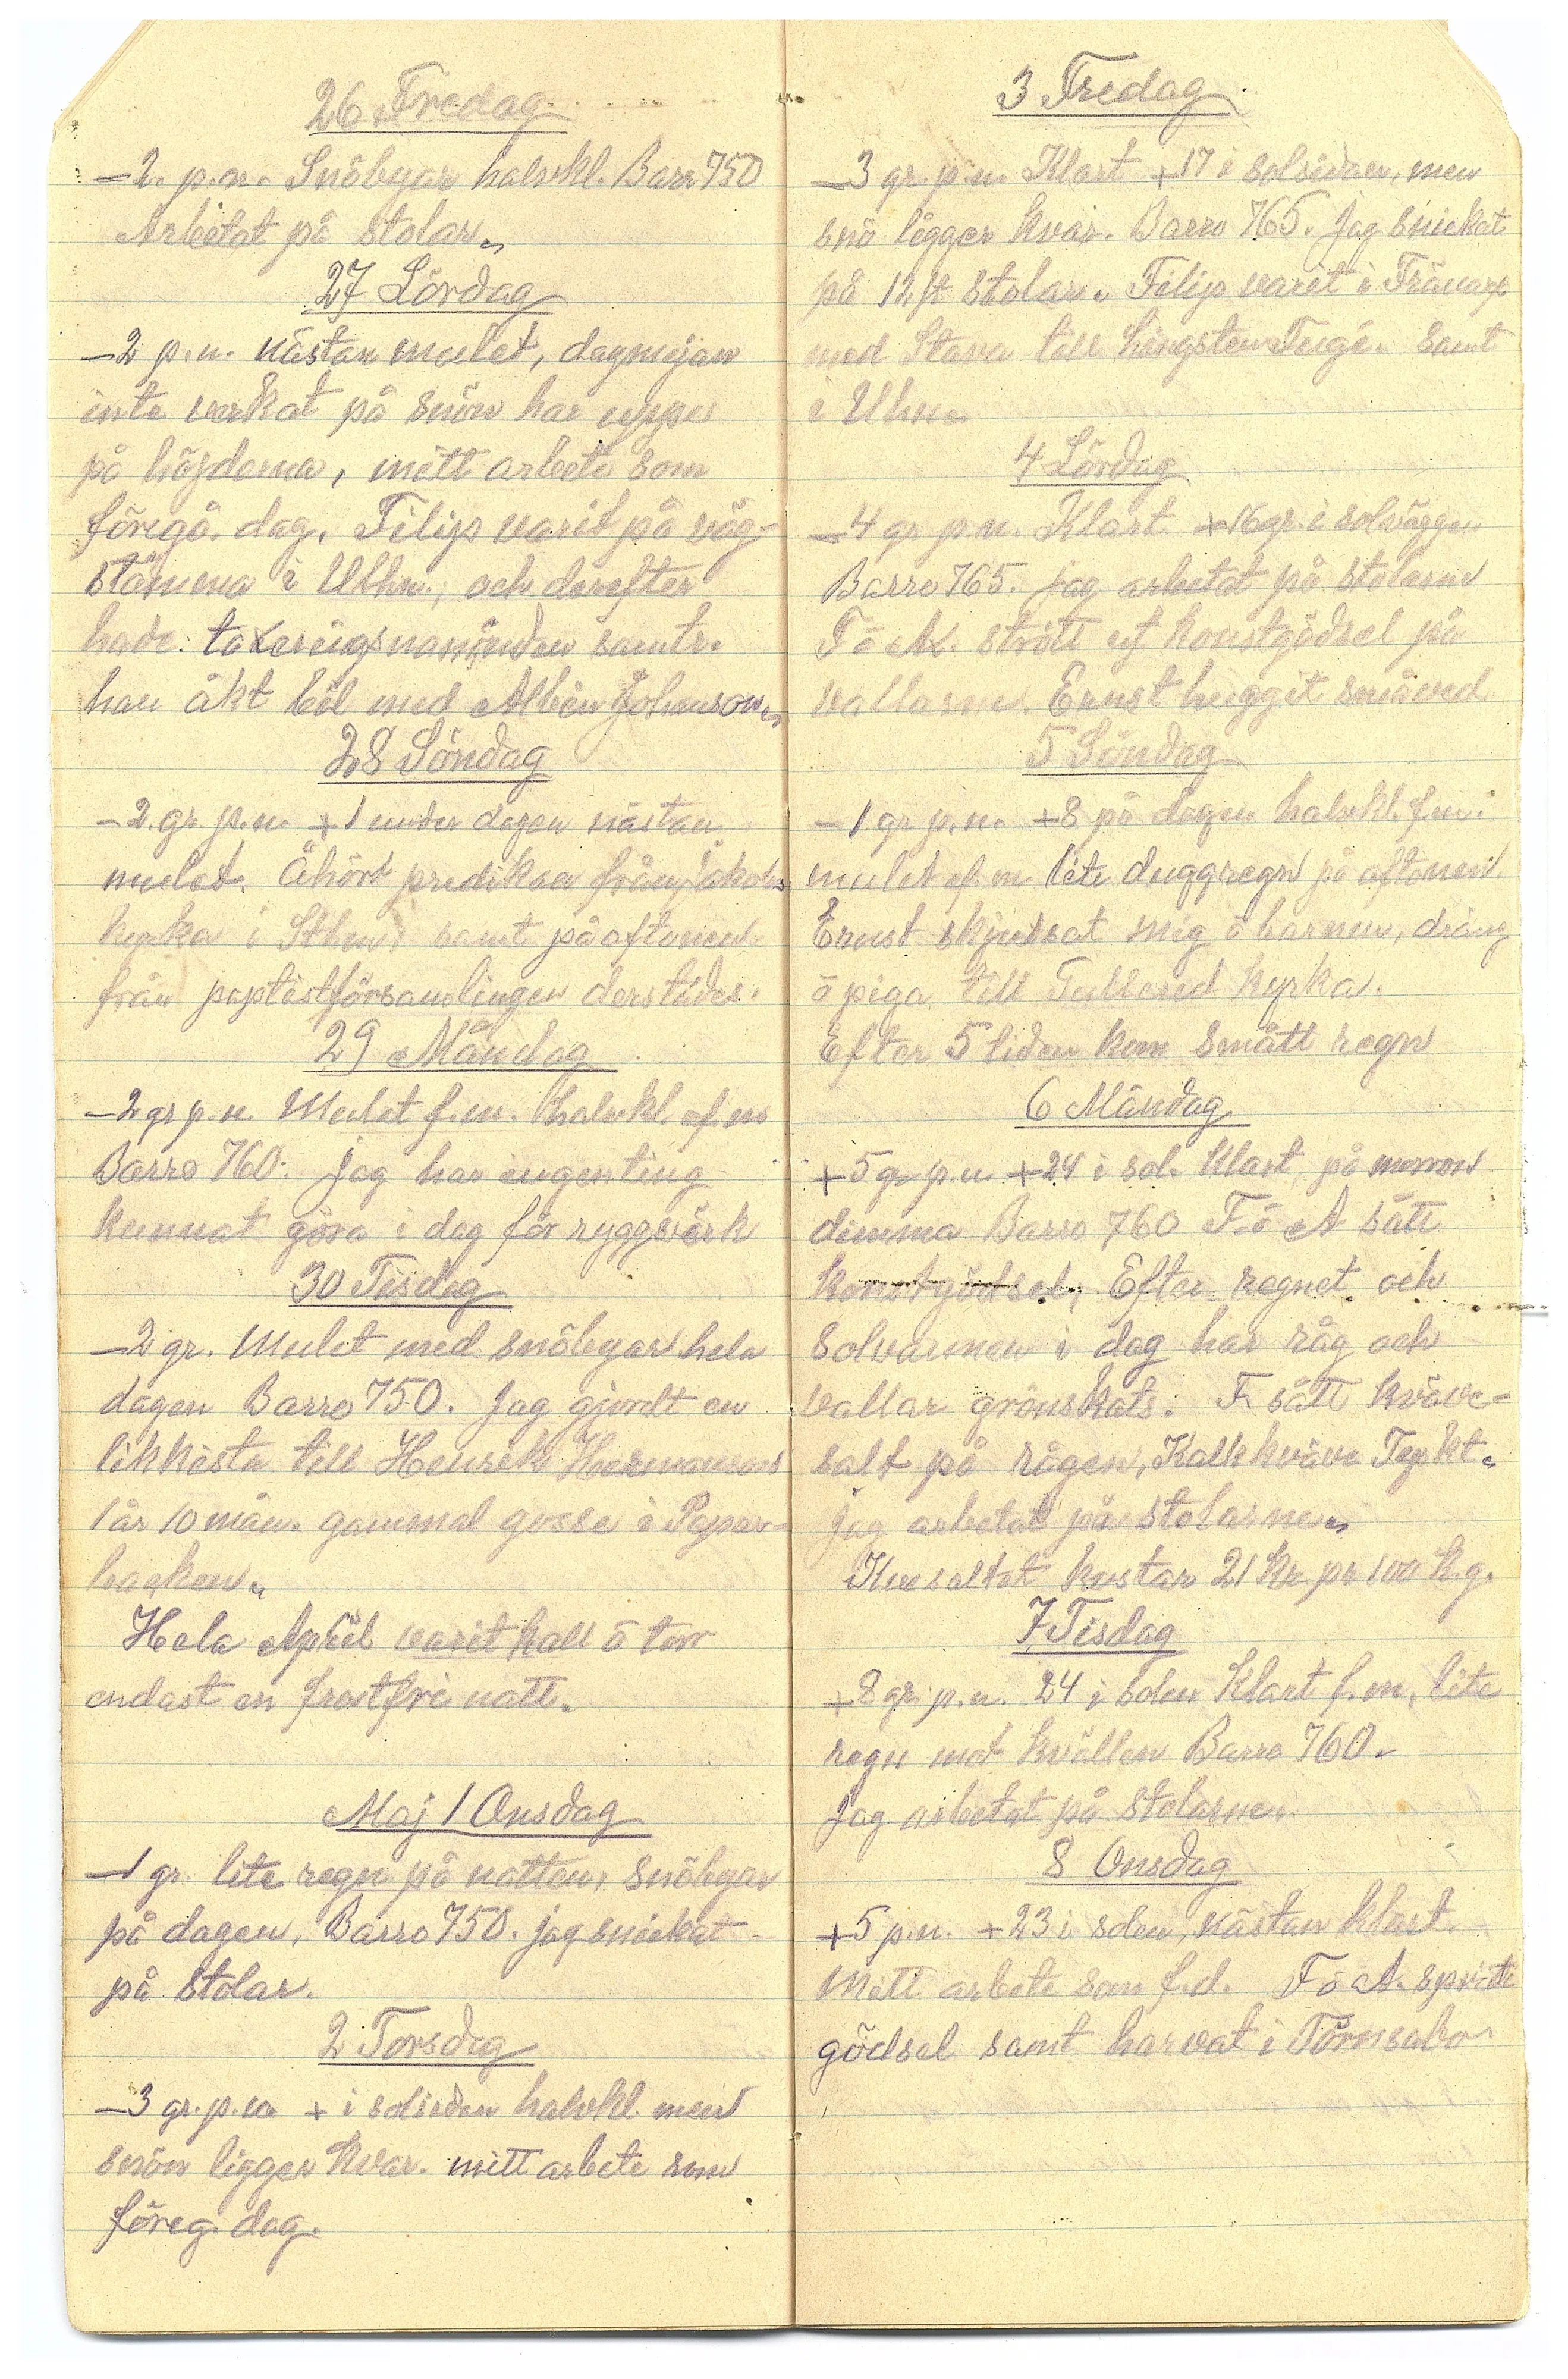 26 Fredag
-2. p.n. Snöbyar halvkl. Barr 750
Arbetat på stolar.
27 Lördag
-2 p.n. nästan mulet, dagmejan
inte verkat på snön har uppe
på höjderna, mitt arbete som
föregå. dag. Filip varit på väg-
stämma i Ulhn., och derefter
hade. samtr.
han åkt bil med Albin Johanson.
28 Söndag
-2. gr. p.n. +1 under dagen nästan
mulet. Åhört predikan från Jakobs
kyrka i Sthm, samt på aftonen
från paptistförsamlingen derstädes.
29 Måndag
-2 gr p.n. Mulet f.m. halvkl. ef.m
Barro 760. Jag har ingenting
kunnat göra i dag för ryggvärk
30 Tisdag
-2 gr. Mulet med snöbyar hela
dagen Barro 750. Jag gjordt en
likkista till Henrik Hermansons
1 år 10 mån. gammal gosse i Pepar-
backen.
Hela April varit kall ö torr
endast en frostfri natt.
Maj 1 Onsdag
-1 gr. lite regn på natten, snöbyar
på dagen, Barro 750. jag snickat
på stolar.
2 Torsdag
-3 gr. p.n + i solsidan halvkl. men
snön ligger kvar. mitt arbete som
föreg. dag.
3 Fredag
-3 gr. p.n. Klart +17 i solsidan, men
snö ligger kvar. Barro 765. Jag snickat
på 12 st stolar. Filip varit i Tränarp
med Stava till hingsten samt
i Ulhn.
4 Lördag
-4 gr p.n. Klart +16 gr. i solväggen
Barro 765. jag arbetat på stolarne
F ö A. strött ut konstgödsel på
vallarne. Ernst huggit småved
5 Söndag
-1 gr p.n. +8 på dagen halvkl. f.m.
mulet ef.m lite duggregn på aftonen.
Ernst skjutsat mig ö barnen, dräng
ö piga till Tullered kyrka.
Efter 5 tiden kom smått regn
6 Måndag
+5 gr p.n. +24 i sol. klart, på morron
dimma Barro 760 F. ö A sått
konstgödsel, Efter regnet och
solvarmen i dag har råg och
vallar grönskats. F. sått kväve-
salt på rågen, Kalkkväve
jag arbetat på stolarne.
kostar 21 Kr pr 100 K.g.
7 Tisdag
+8 gr. p.n. 24 i solen Klart f.m, lite
regn mot kvällen Barro 760.
Jag arbetat på stolarne.
8 Onsdag
+5 p.n. +23 i solen, nästan klart.
Mitt arbete som f.d. F ö A. spridt
gödsel samt harvat i